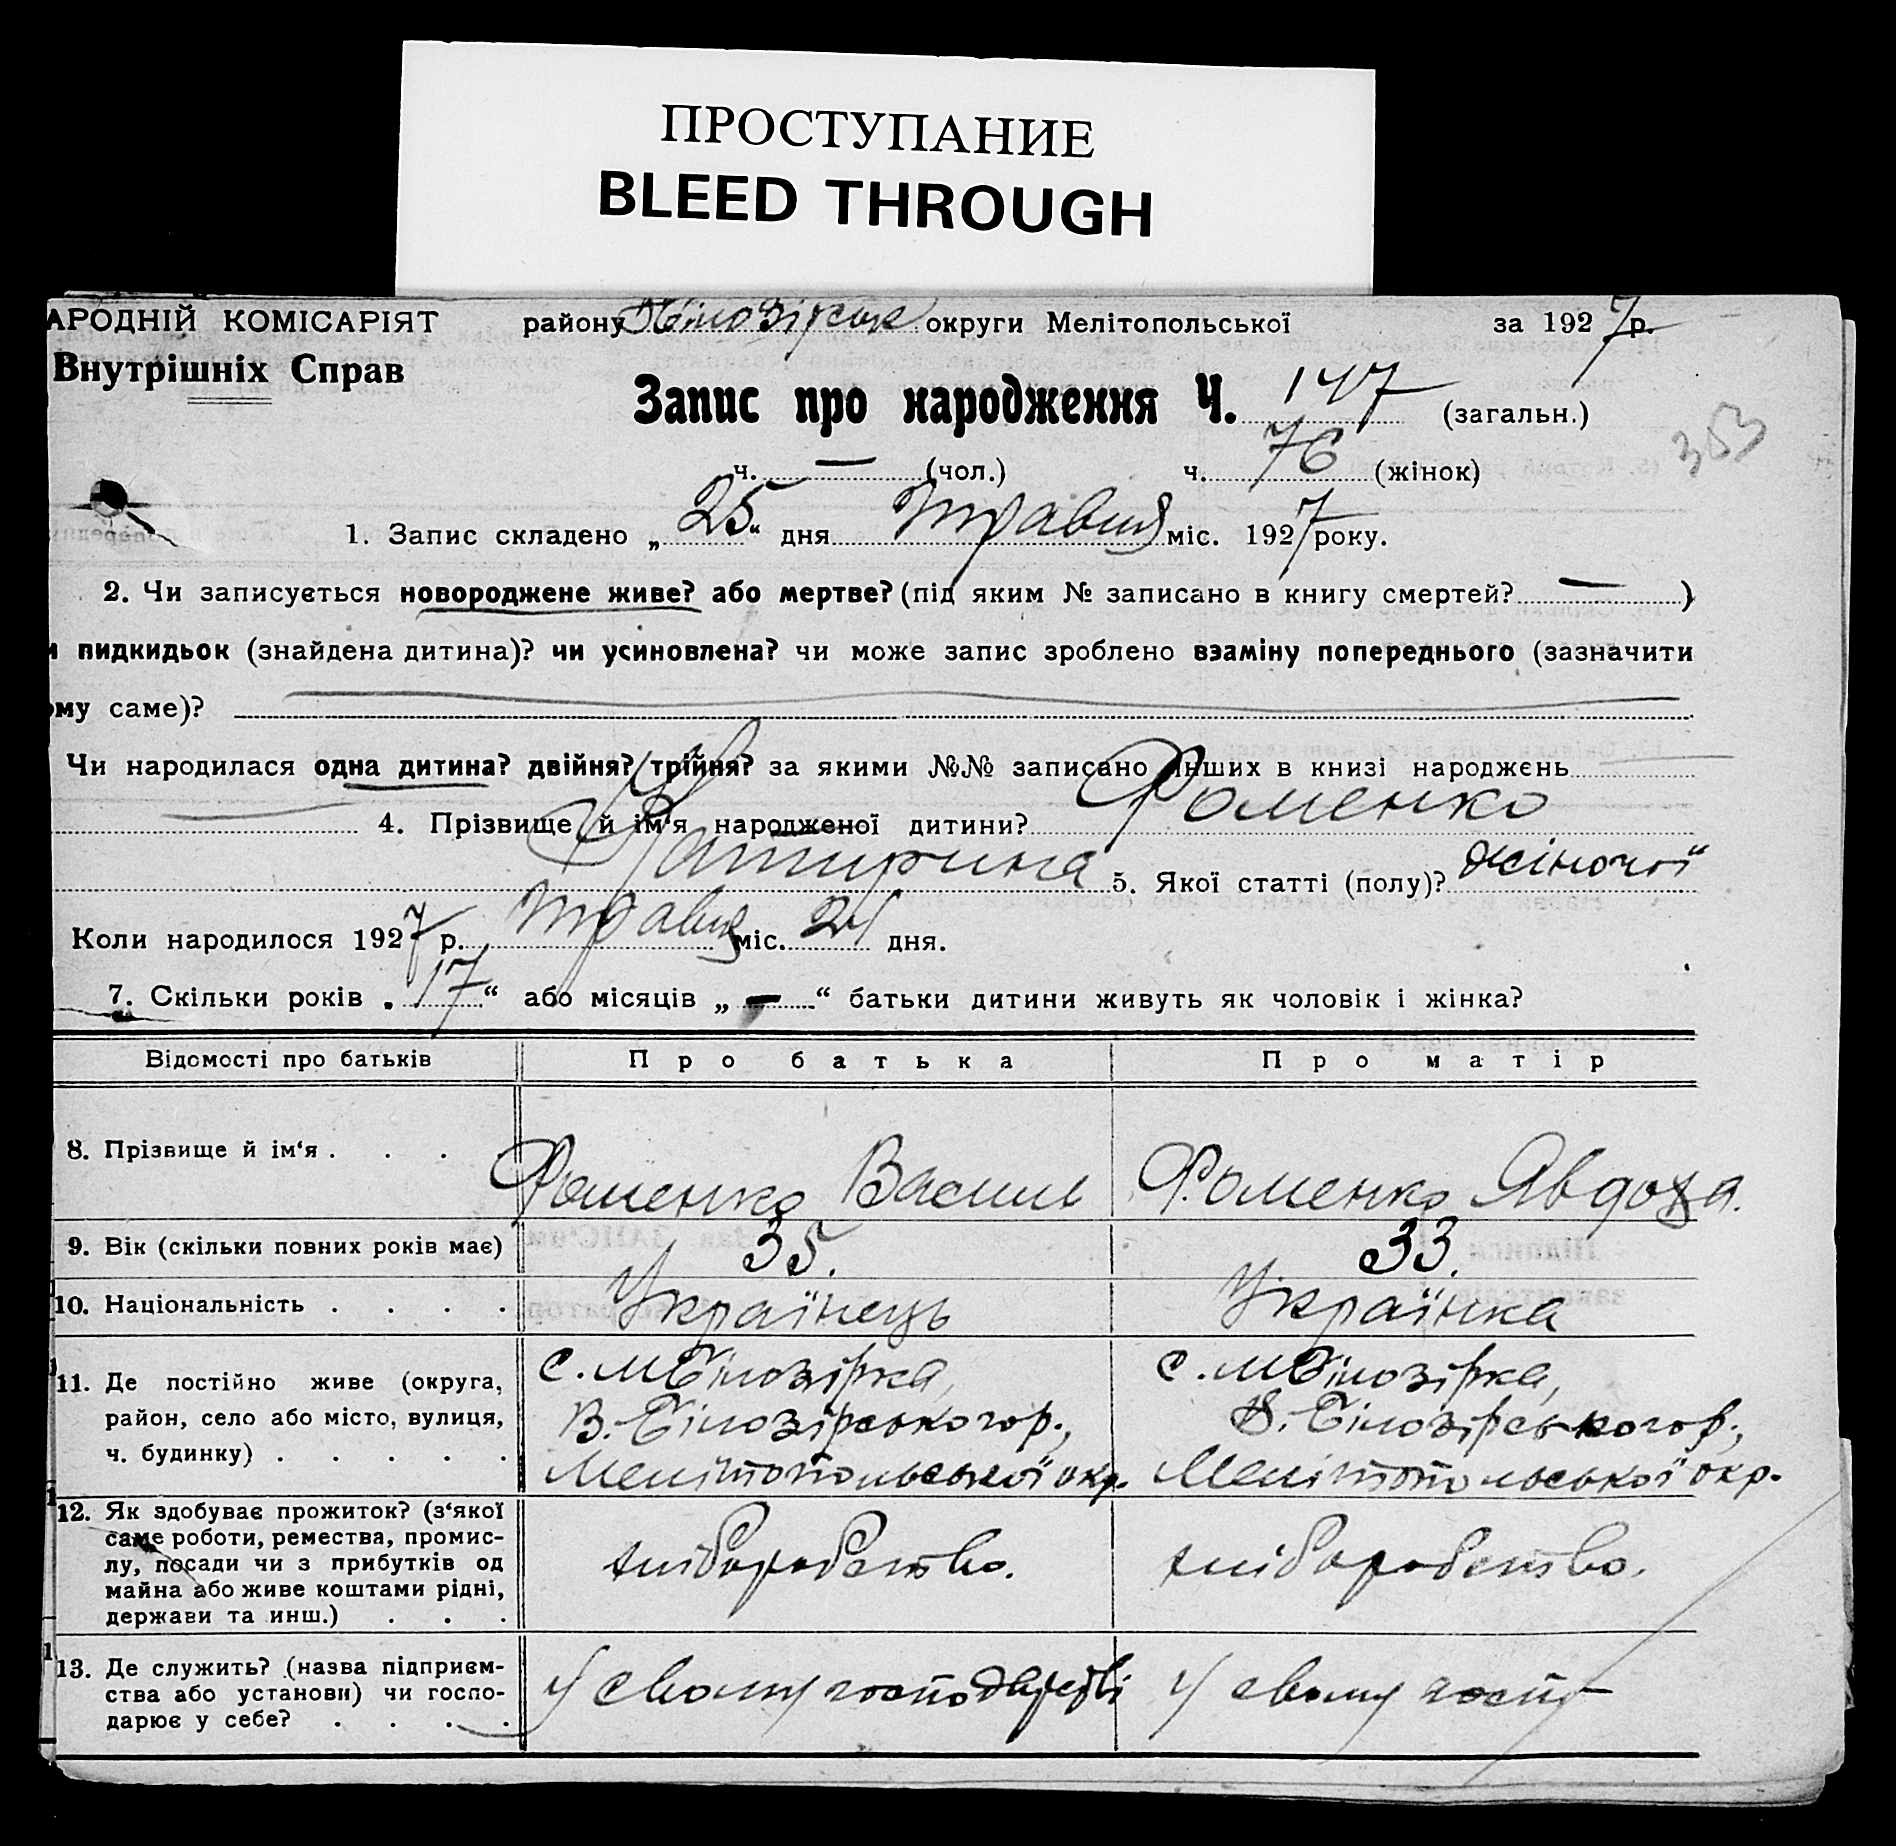 ПРОСТУПАНИЕ
BLEED THROUGH
АРОДНІЙ КОМІСАРІЯТ району Білозірськ округи Мелітопольської за 1927 р.
Внутрішніх Справ
Запис про народження Ч. 147 (загальн.)
353
ч. — (чол.) ч. 76 (жінок)
1. Запис складено „25“ дня Травня міс. 1927 року.
2. Чи записується новороджене живе? або мертве? (під яким № записано в книгу смертей? — )
и пидкидьок (знайдена дитина)? чи усиновлена? чи може запис зроблено взаміну попереднього (зазначити
ому саме)?
Чи народилася одна дитина? двійня? трійня? за якими №№ записано инших в книзі народжень
4. Прізвище й ім‘я народженої дитини? Фоменко
Катирина 5. Якої статті (полу)? жіночої
Коли народилося 1927 р. Травня міс. 24 дня.
7. Скільки років „17“ або місяців „ — “ батьки дитини живуть як чоловік і жінка?
Відомості про батьків Про батька Про матір
8. Прізвище й ім‘я . . . Фоменко Василь Фоменко Явдоха.
9. Вік (скільки повних років має) 35. 33.
10. Національність . . . . Українець Українка
11. Де постійно живе (округа, район, село або місто, вулиця, ч. будинку) . . . . .
с. МБілозірка,
В.-Білозірського р.,
Мелітопольської окр.
с. МБілозірка,
В.-Білозірського р.,
Мелітопольської окр.
12. Як здобуває прожиток? (з‘якої
саме роботи, ремества, промис-
лу, посади чи з прибутків од
майна або живе коштами рідні,
держави та инш.) . . .
хліборобство. хліборобство.
13. Де служить? (назва підприєм-
ства або установи) чи госпо-
дарює у себе? . . . .
У свому господарстві У свому госпо